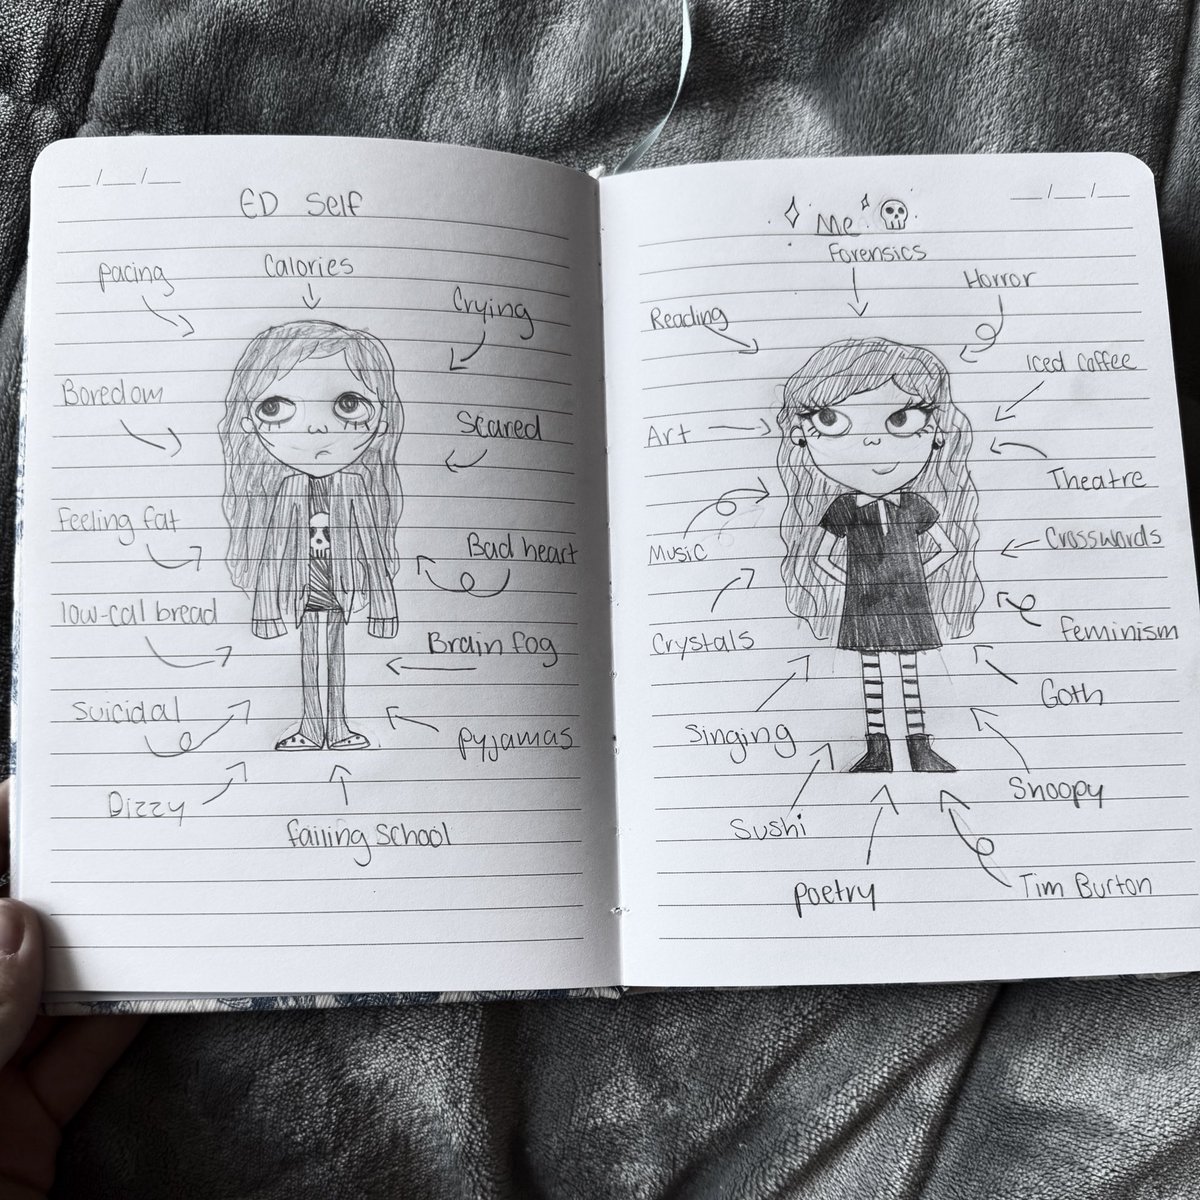 __/__/__
ED Self
Pacing
Calories
Crying
Boredom
Scared
Feeling fat
Bad heart
low-cal bread
Brain fog
Suicidal
Pyjamas
Dizzy
failing school
__/__/__
Me
Forensics
Horror
Reading
Iced Coffee
Art
Theatre
Music
Crosswords
Crystals
Feminism
Goth
Singing
Snoopy
Sushi
Poetry
Tim Burton